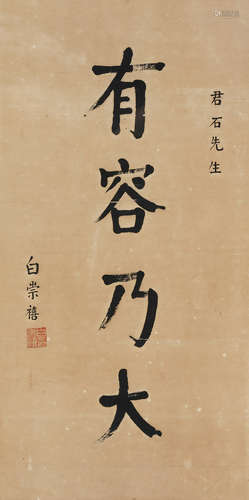 君石先生
有容乃大
白崇禧